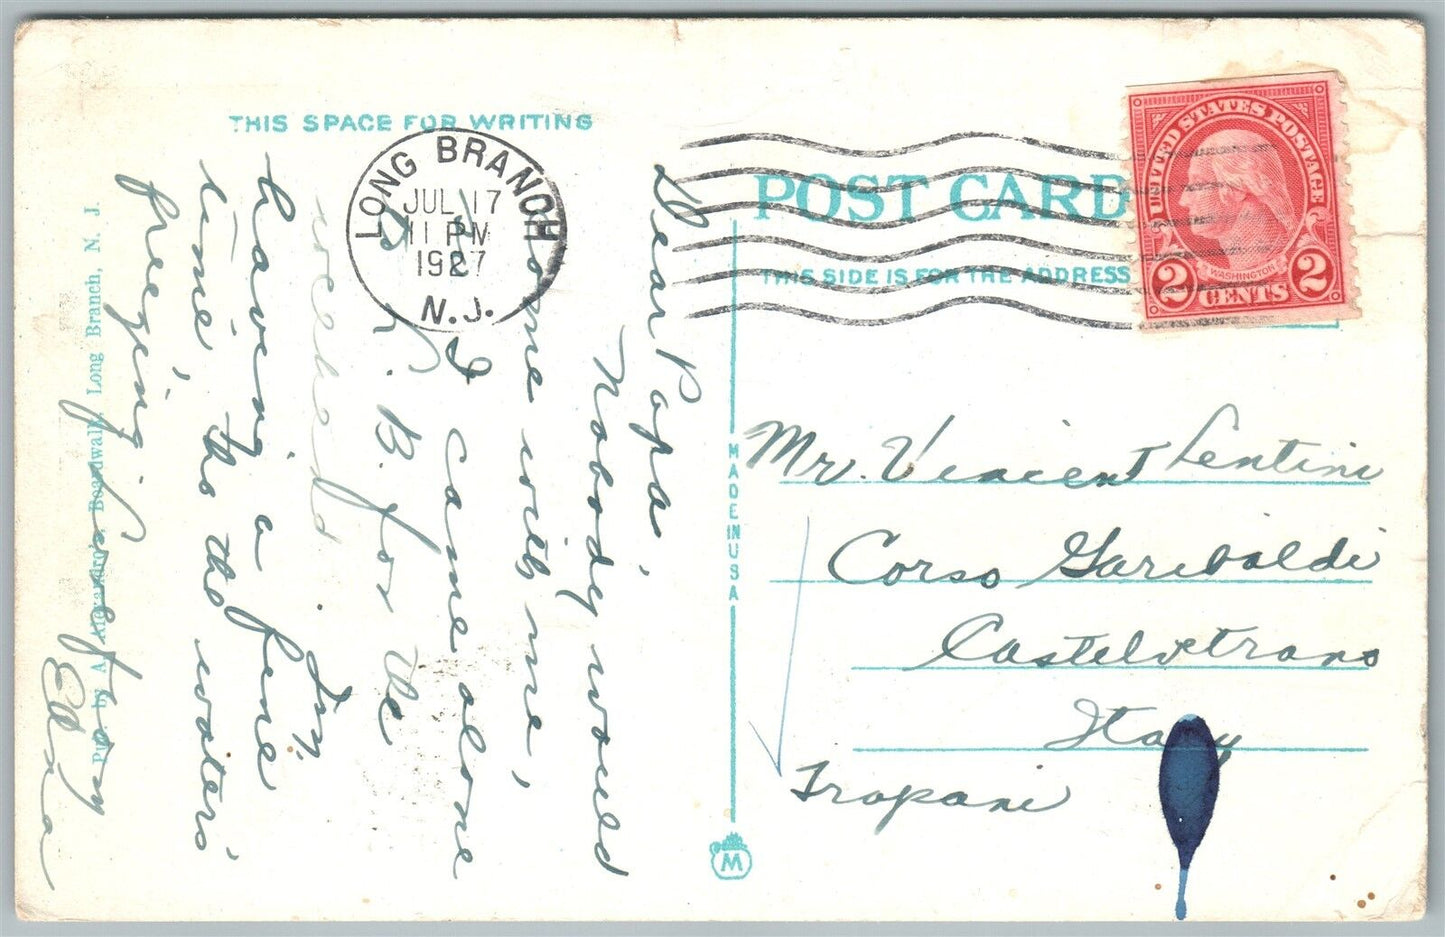 THIS SPACE FOR WRITING
POST CARD
THIS SIDE IS FOR THE ADDRESS
LONG BRANCH
JUL 17
11 PM
1927
N.J.
UNITED STATES POSTAGE
WASHINGTON
2 CENTS 2
Dear Papa,
Nobody would
come with me,
so I came alone
to L. B. for the
week end. I'm
having a fine
time, tho the water's
freezing.
Lovingly
Edna
Mr. Vincent Lentini
Corso Garibaldi
Castelvetrano
Italy
Trapani
MADE IN USA
M
Pub. by A. Boardwalk, Long Branch, N. J.